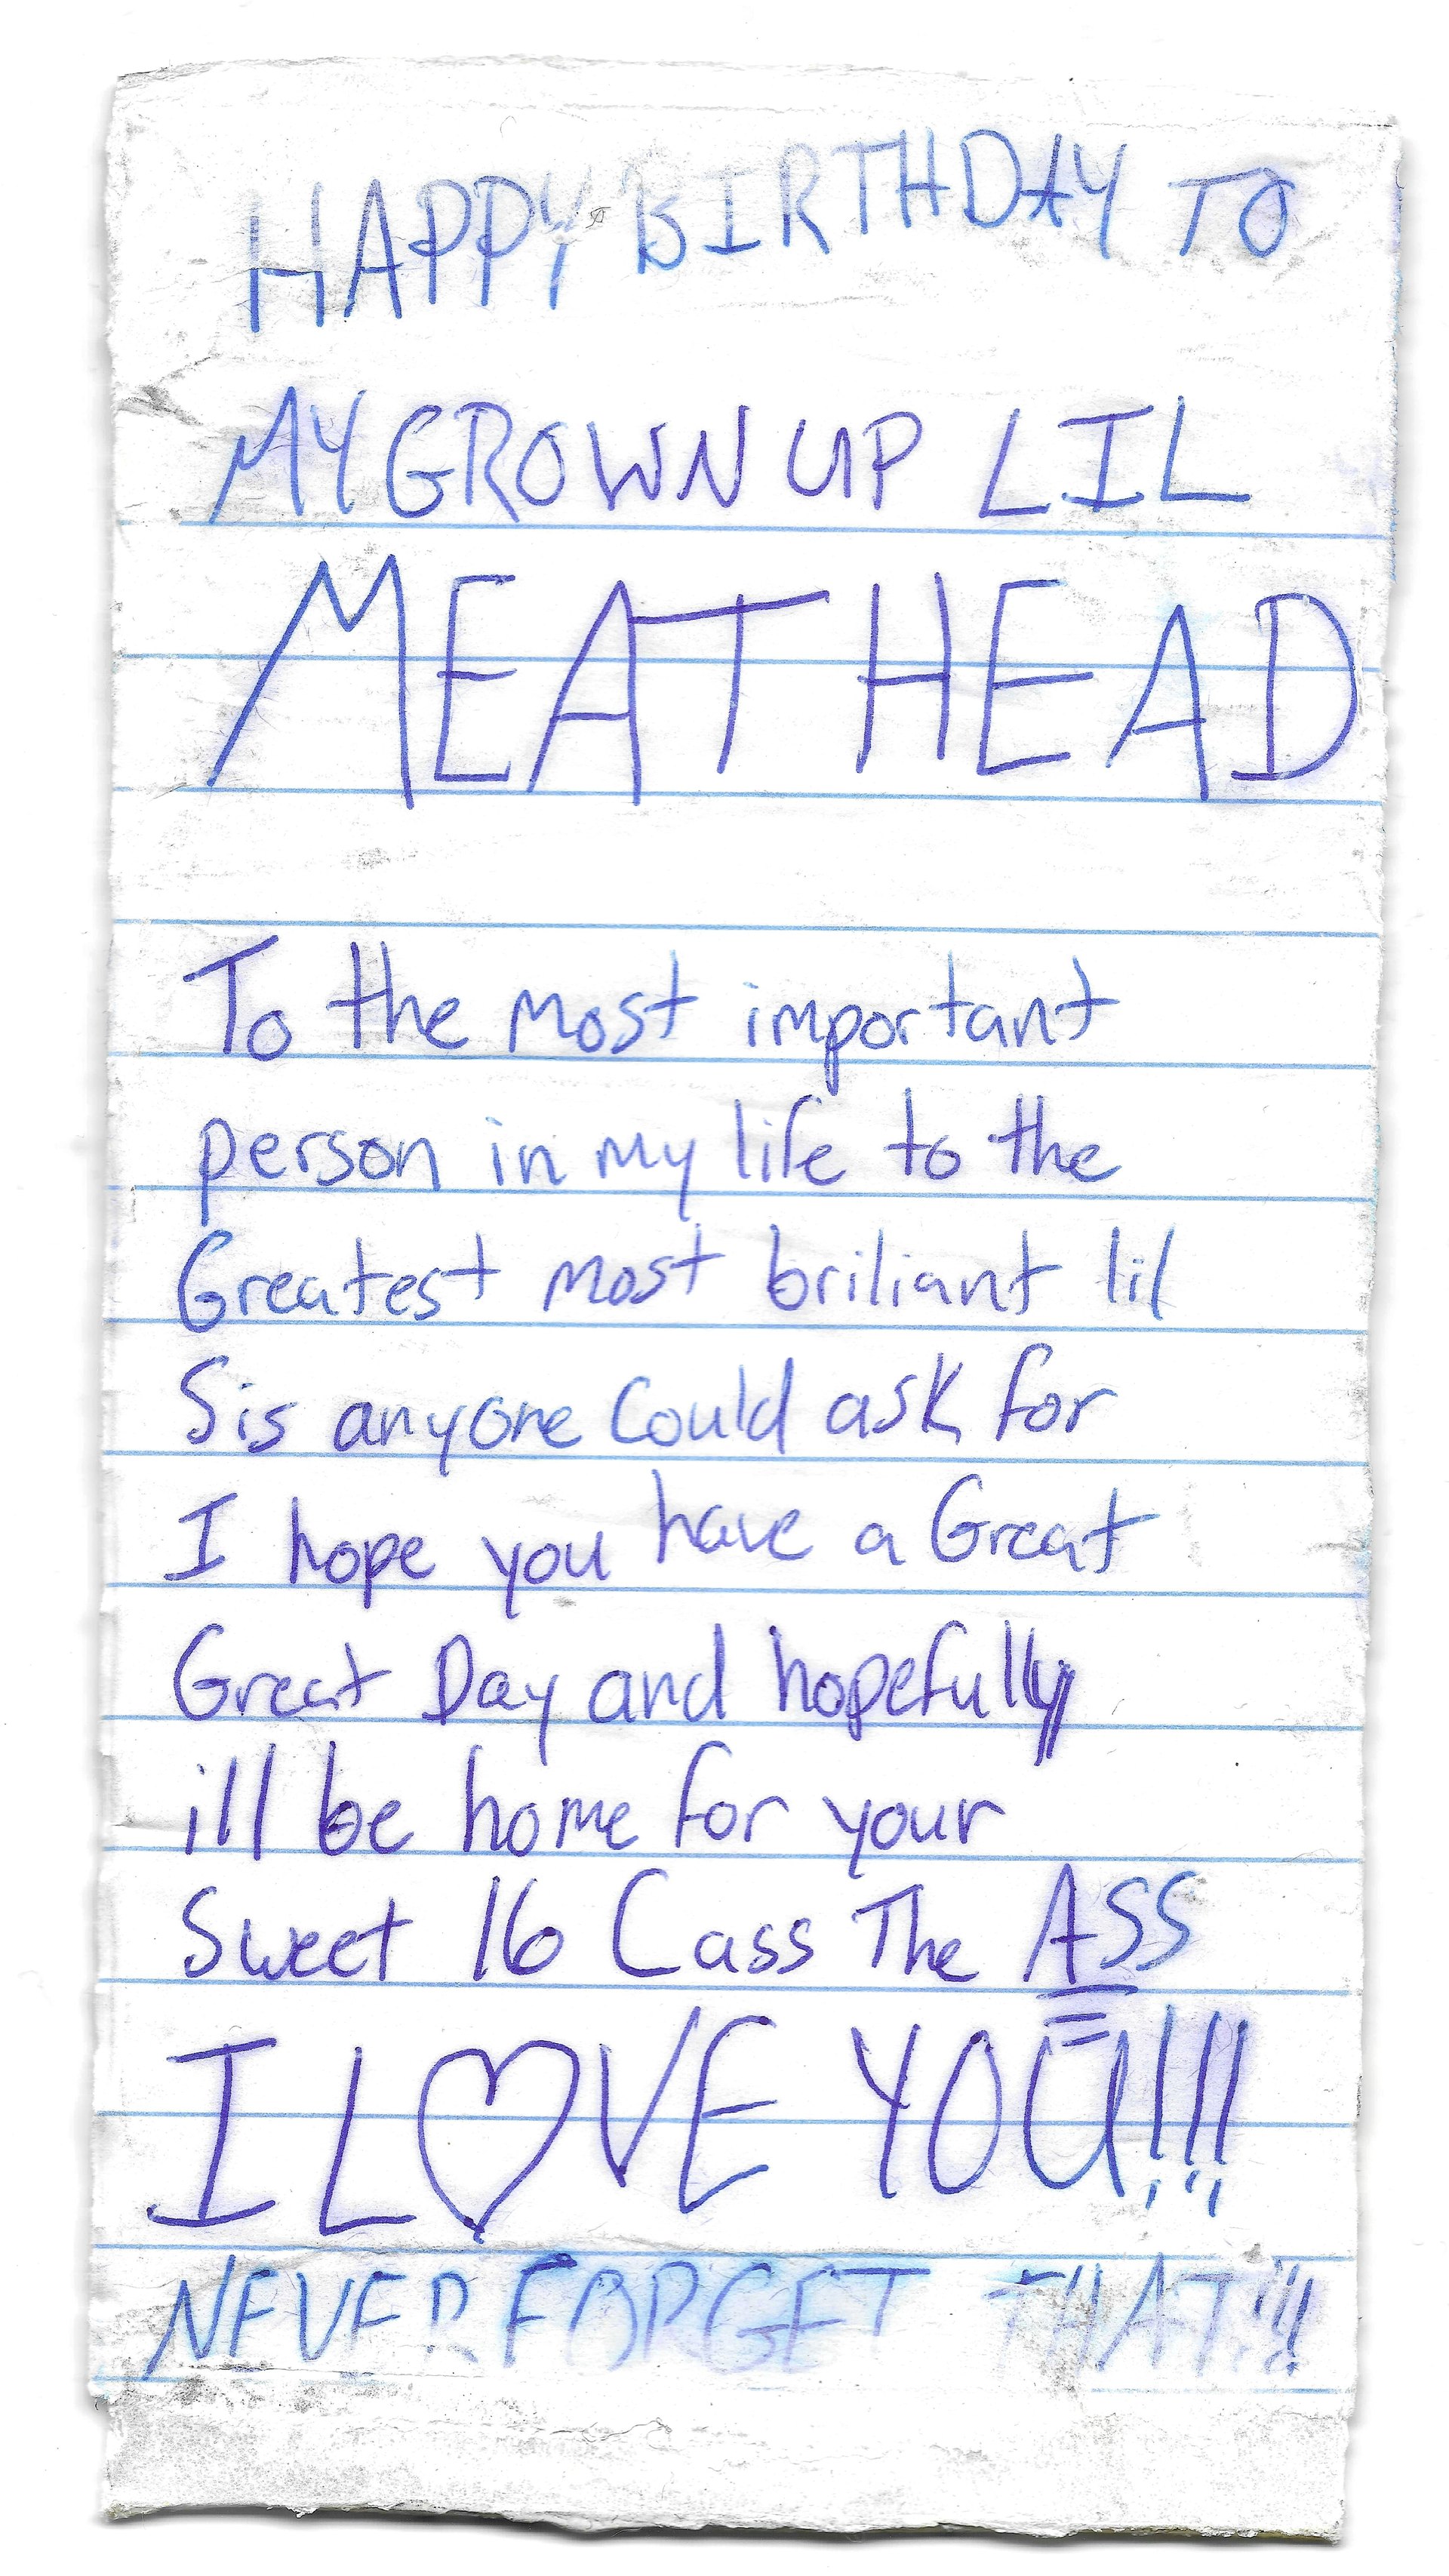 HAPPY BIRTHDAY TO
MY GROWN UP LIL
MEATHEAD
To the most important
person in my life to the
Greatest most briliant lil
Sis anyone Could ask for
I hope you have a Great
Great Day and hopefully
ill be home for your
Sweet 16 Cass The ASS
I L♡VE YOU!!!
NEVER FORGET THAT!!!